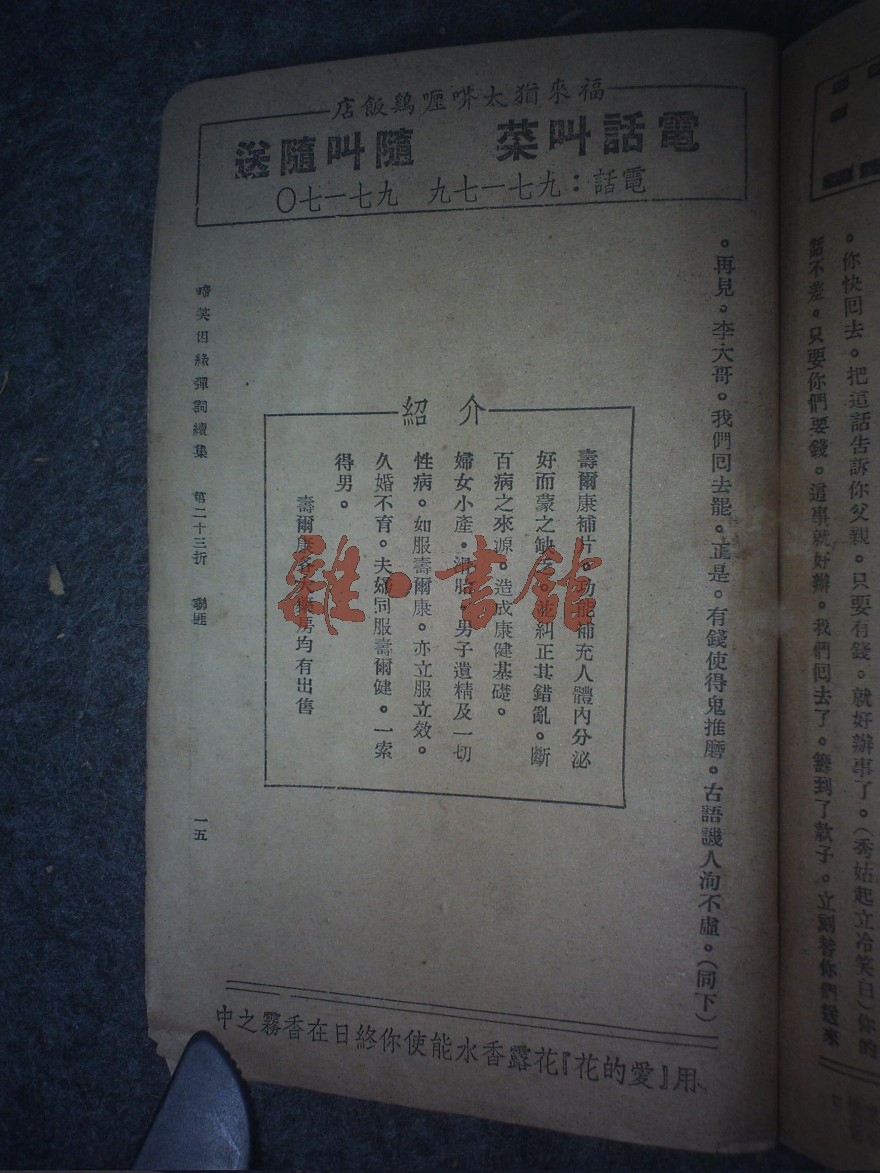 福來猶太咪喱鷄飯店
電話叫菜　隨叫隨送
電話：九七一七九　九七一七〇
。你快回去。把這話告訴你父親。只要有錢。就好辦事了。（秀姑起立冷笑白）你的
話不差。只要你們要錢。這事就好辦。我們回去了。籌到了款子。立刻替你們送來
。再見。李大哥。我們回去罷。正是。有錢使得鬼推磨。古語譏人洵不虛。（同下）
介紹
壽爾康補片。功能補充人體內分泌
好而蒙之缺乏。並糾正其錯亂。斷
百病之來源。造成康健基礎。
婦女小產。滑胎。男子遺精及一切
性病。如服壽爾康。亦立服立效。
久婚不育。夫婦同服壽爾健。一索
得男。
壽爾康各大藥房均有出售
啼笑因緣彈詞續集　第二十三折　聯匪
一五
用『愛的花』花露香水能使你終日在香霧之中
雅·書館